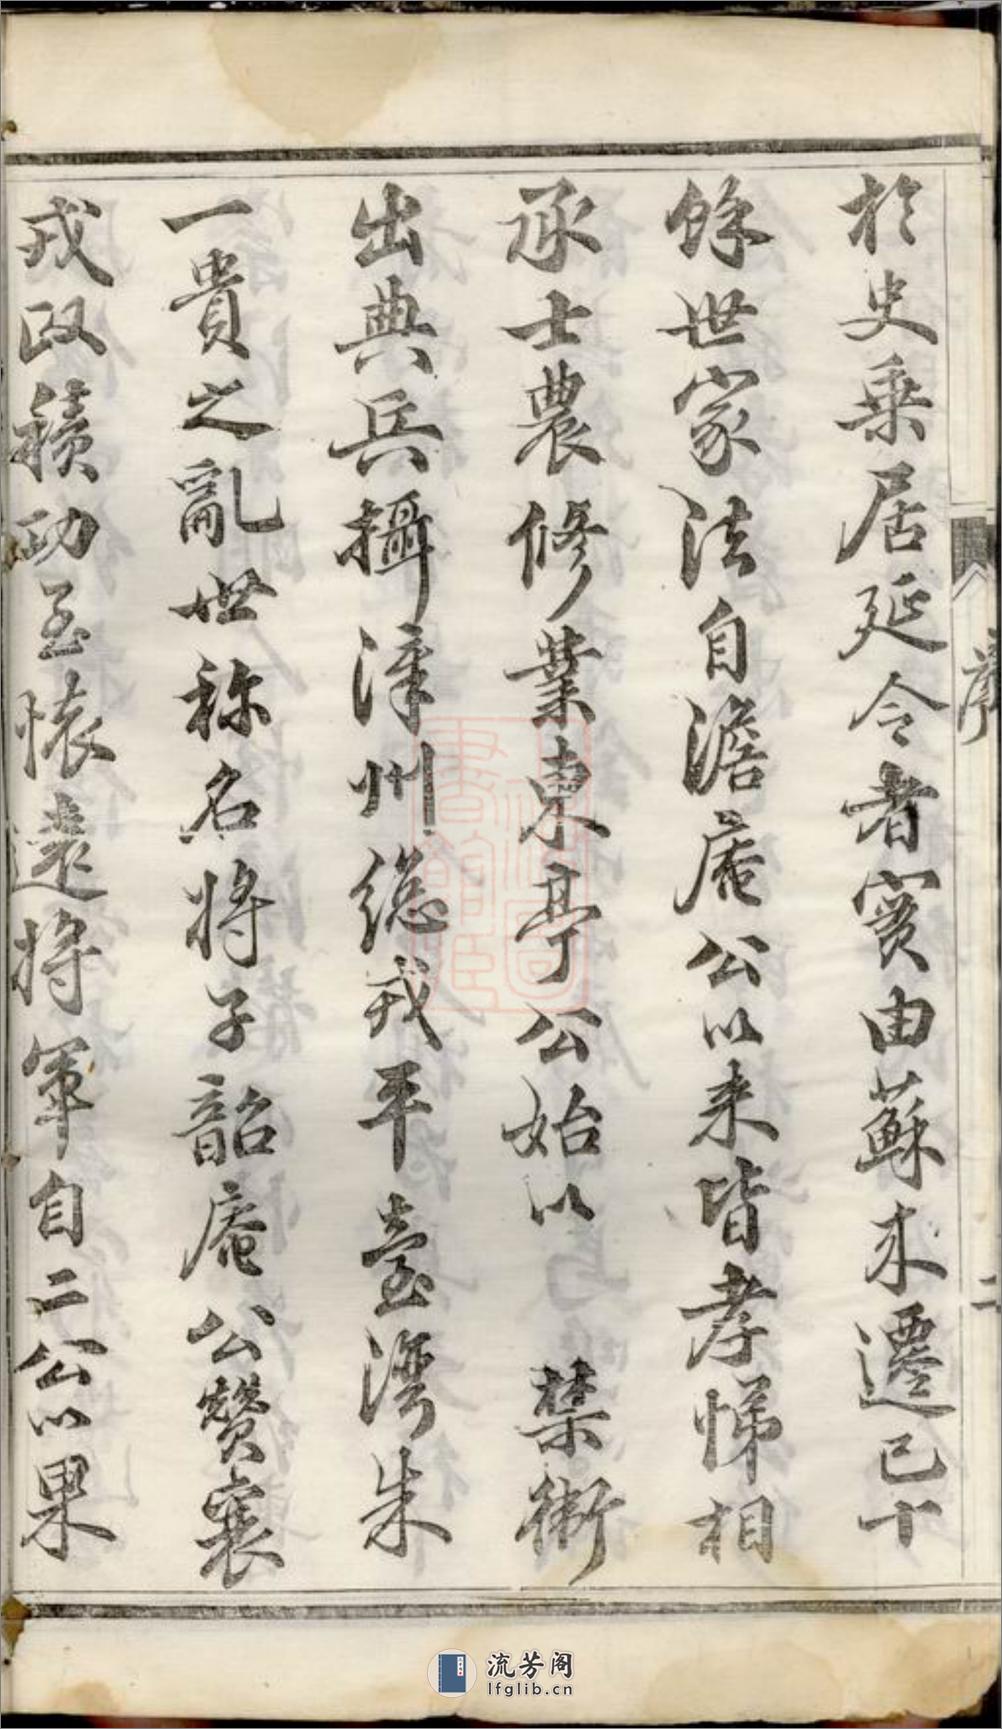 於史乗居延令者實由蘇来遷已十
餘世家法自澹庵公以来皆孝悌相
承士農修業東亭公始以 禁衛
出典兵攝漳州總戎平臺湾朱
一貴之亂世称名將子韶庵公贊襄
戎政積功至懐遠將軍自二公以果
序
二
流芳阁
lfglib.cn